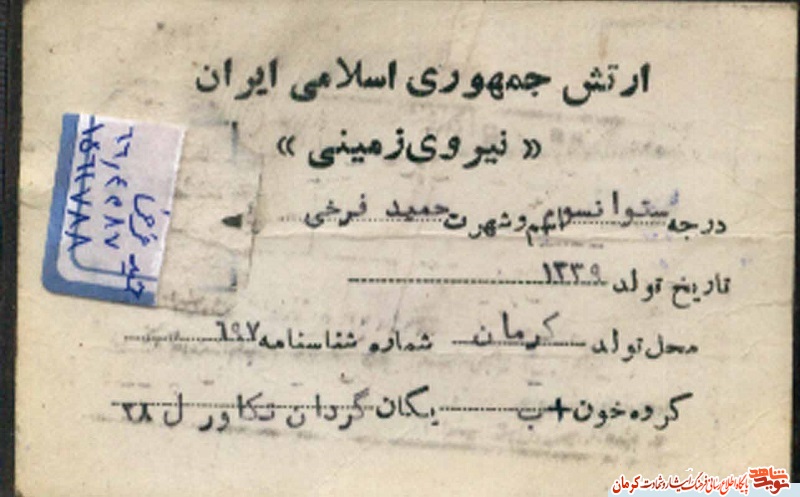 ارتش جمهوری اسلامی ایران
« نیروی زمینی »
درجه ستوانسوم اسم و شهرت حمید فرخی
تاریخ تولد ۱۳۳۹
محل تولد کرمان شماره شناسنامه ۶۹۷
گروه خون +ب یگان گردان تکاور ل ۲۸
حمید فرخی
نوید شاهد
پایگاه اطلاع رسانی فرهنگ ایثار و شهادت کرمان